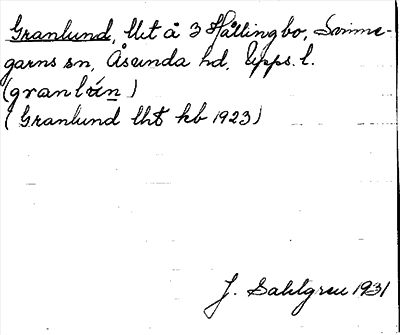 Granlund, lht å 3 Hällingbo, Svinne-
garns sn, Åsunda hd. Upps. l.
(granlún)
(Granlund lht kb 1923)
J. Sahlgren 1931